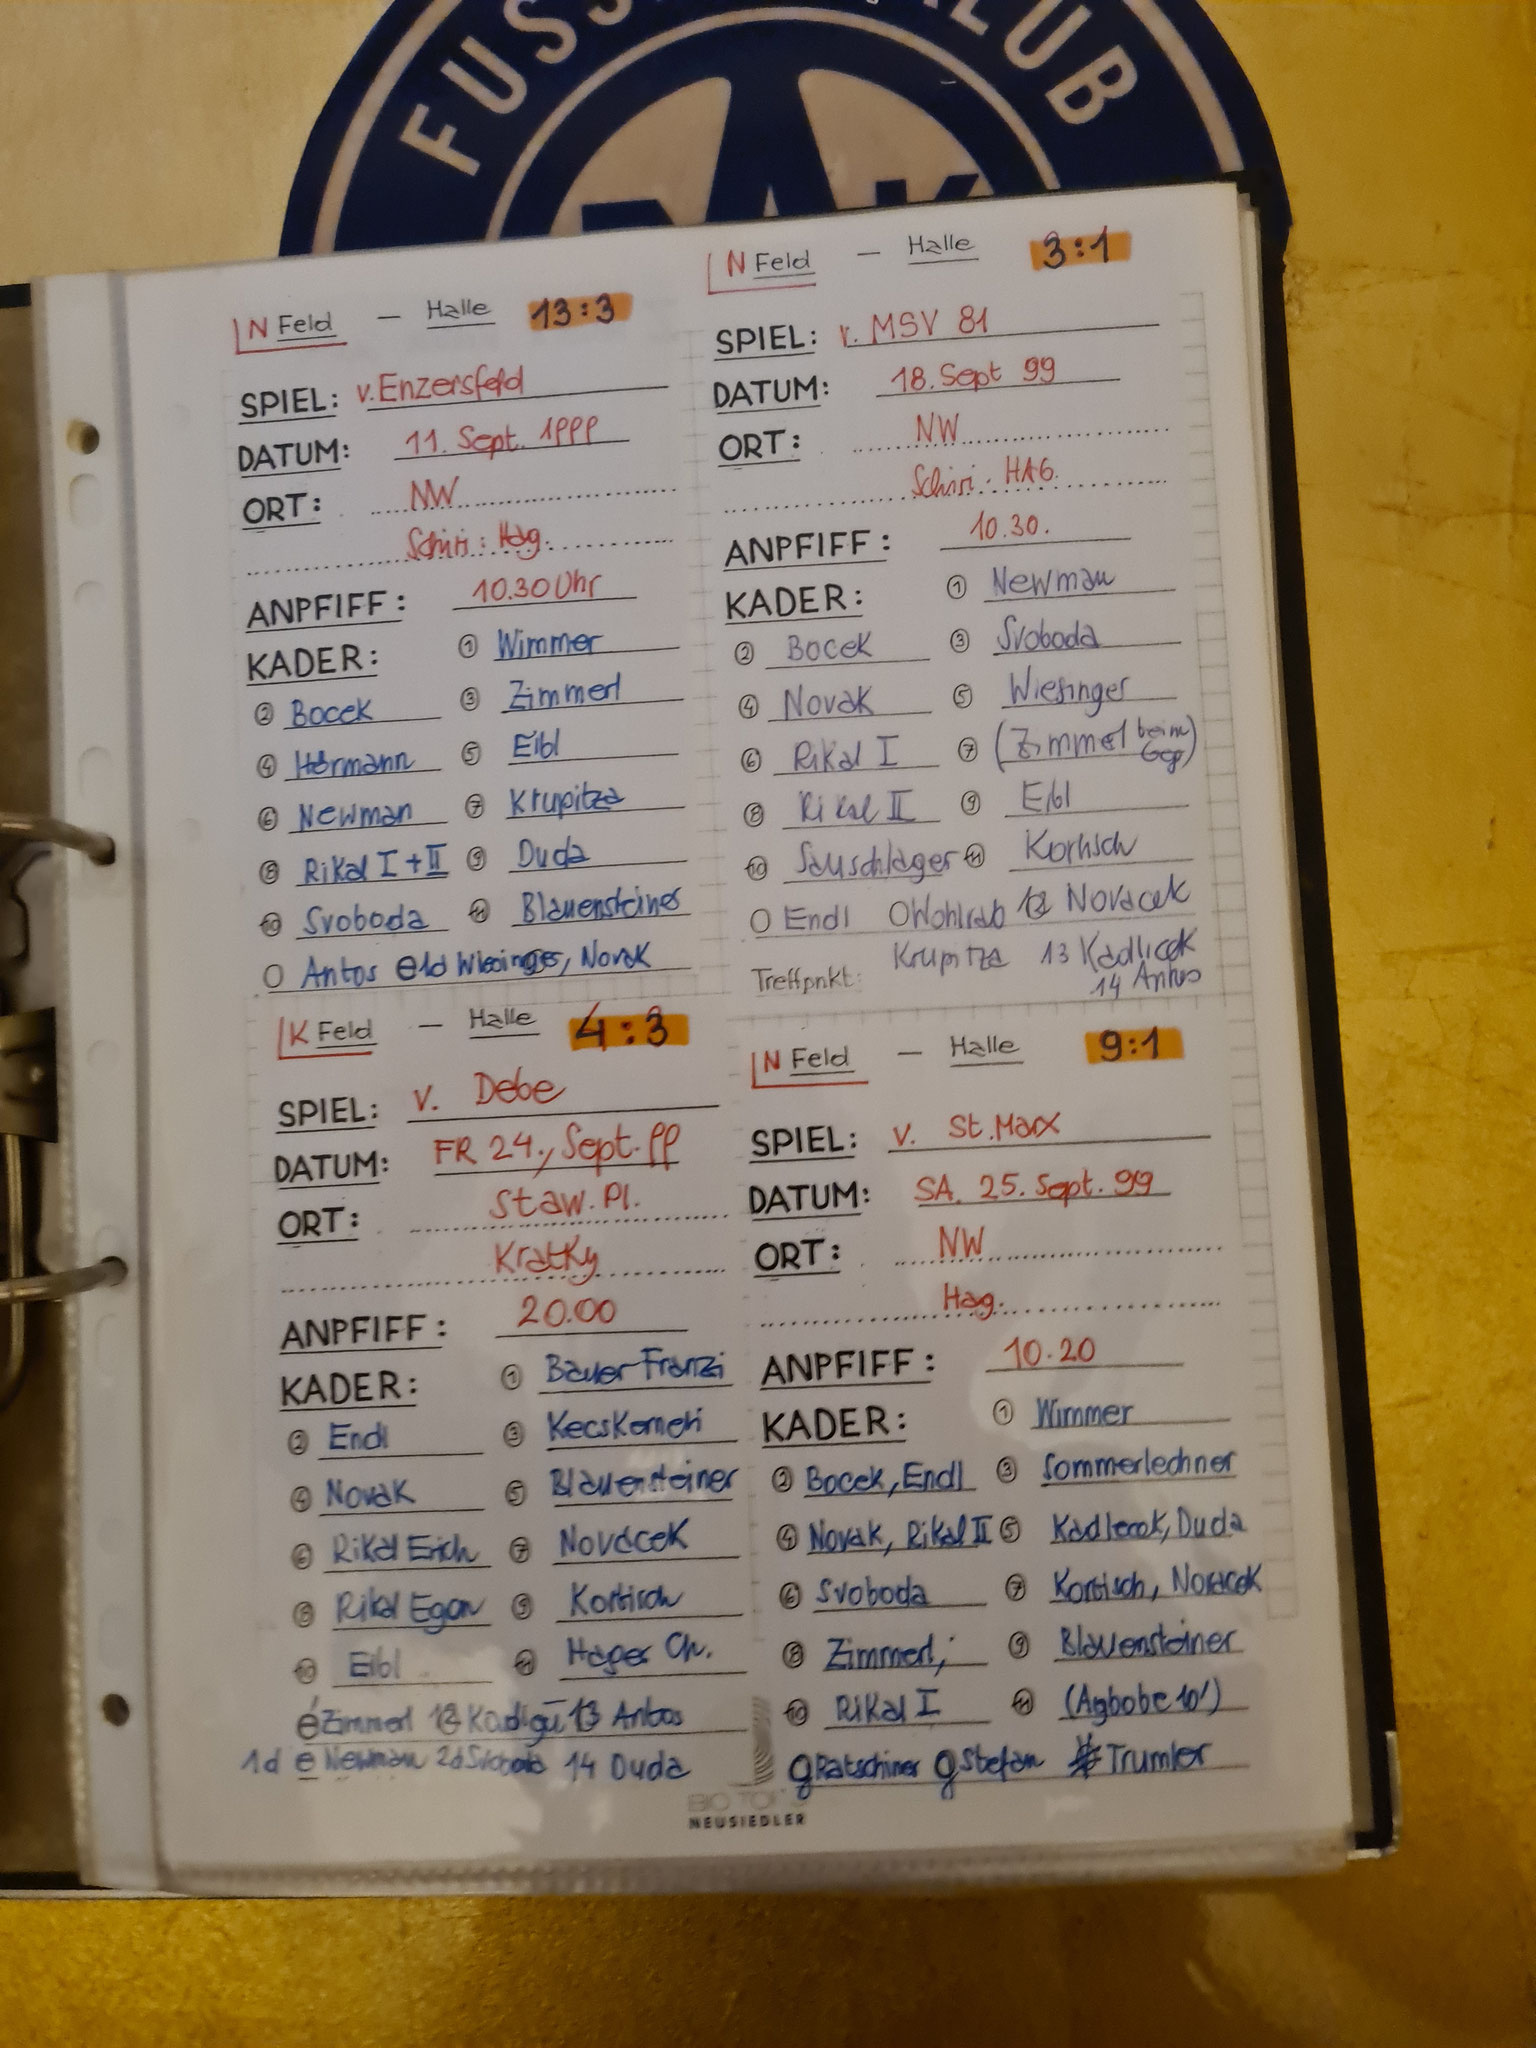 FUSS KLUB
N Feld – Halle 13:3
SPIEL: v. Enzersfeld
DATUM: 11. Sept. 1999
ORT: NW
Schiri: Hag.
ANPFIFF: 10.30 Uhr
KADER: ① Wimmer
② Bocek ③ Zimmerl
④ Hörmann ⑤ Eibl
⑥ Newman ⑦ Krupitza
⑧ Rikal I + II ⑨ Duda
⑩ Svoboda ⑪ Blauensteiner
O Antos Wiesinger, Novak
N Feld – Halle 3:1
SPIEL: v. MSV 81
DATUM: 18. Sept 99
ORT: NW
Schiri: HAG.
ANPFIFF: 10.30.
KADER: ① Newman
② Bocek ③ Svoboda
④ Novak ⑤ Wiesinger
⑥ Rikal I ⑦ (Zimmerl beim Geg)
⑧ Rikal II ⑨ Eibl
⑩ Sauschlager ⑪ Kortisch
O Endl O Wohlrab 12 Novacek
Krupitza 13 Kadlicek
Treffpnkt: 14 Antos
K Feld – Halle 4:3
SPIEL: v. Debe
DATUM: FR 24., Sept. 99
ORT: Staw. Pl.
Kratky
ANPFIFF: 20.00
KADER: ① Bauer Franzi
② Endl ③ Kecskemeti
④ Novak ⑤ Blauensteiner
⑥ Rikal Erich ⑦ Novacek
⑧ Rikal Egon ⑨ Kortisch
⑩ Eibl ⑪ Hager Ch.
Zimmerl 12 13 Antos
1d e Newman 2d Svoboda 14 Duda
N Feld – Halle 9:1
SPIEL: v. St. Marx
DATUM: SA. 25. Sept. 99
ORT: NW
Hag.
ANPFIFF: 10.20
KADER: ① Wimmer
② Bocek, Endl ③ Sommerlechner
④ Novak, Rikal II ⑤ Kadlecek, Duda
⑥ Svoboda ⑦ Kortisch, Novacek
⑧ Zimmerl; ⑨ Blauensteiner
⑩ Rikal I ⑪ (Agbobe 10')
g Ratschiner g Stefan Trumler
BIO TOP
NEUSIEDLER